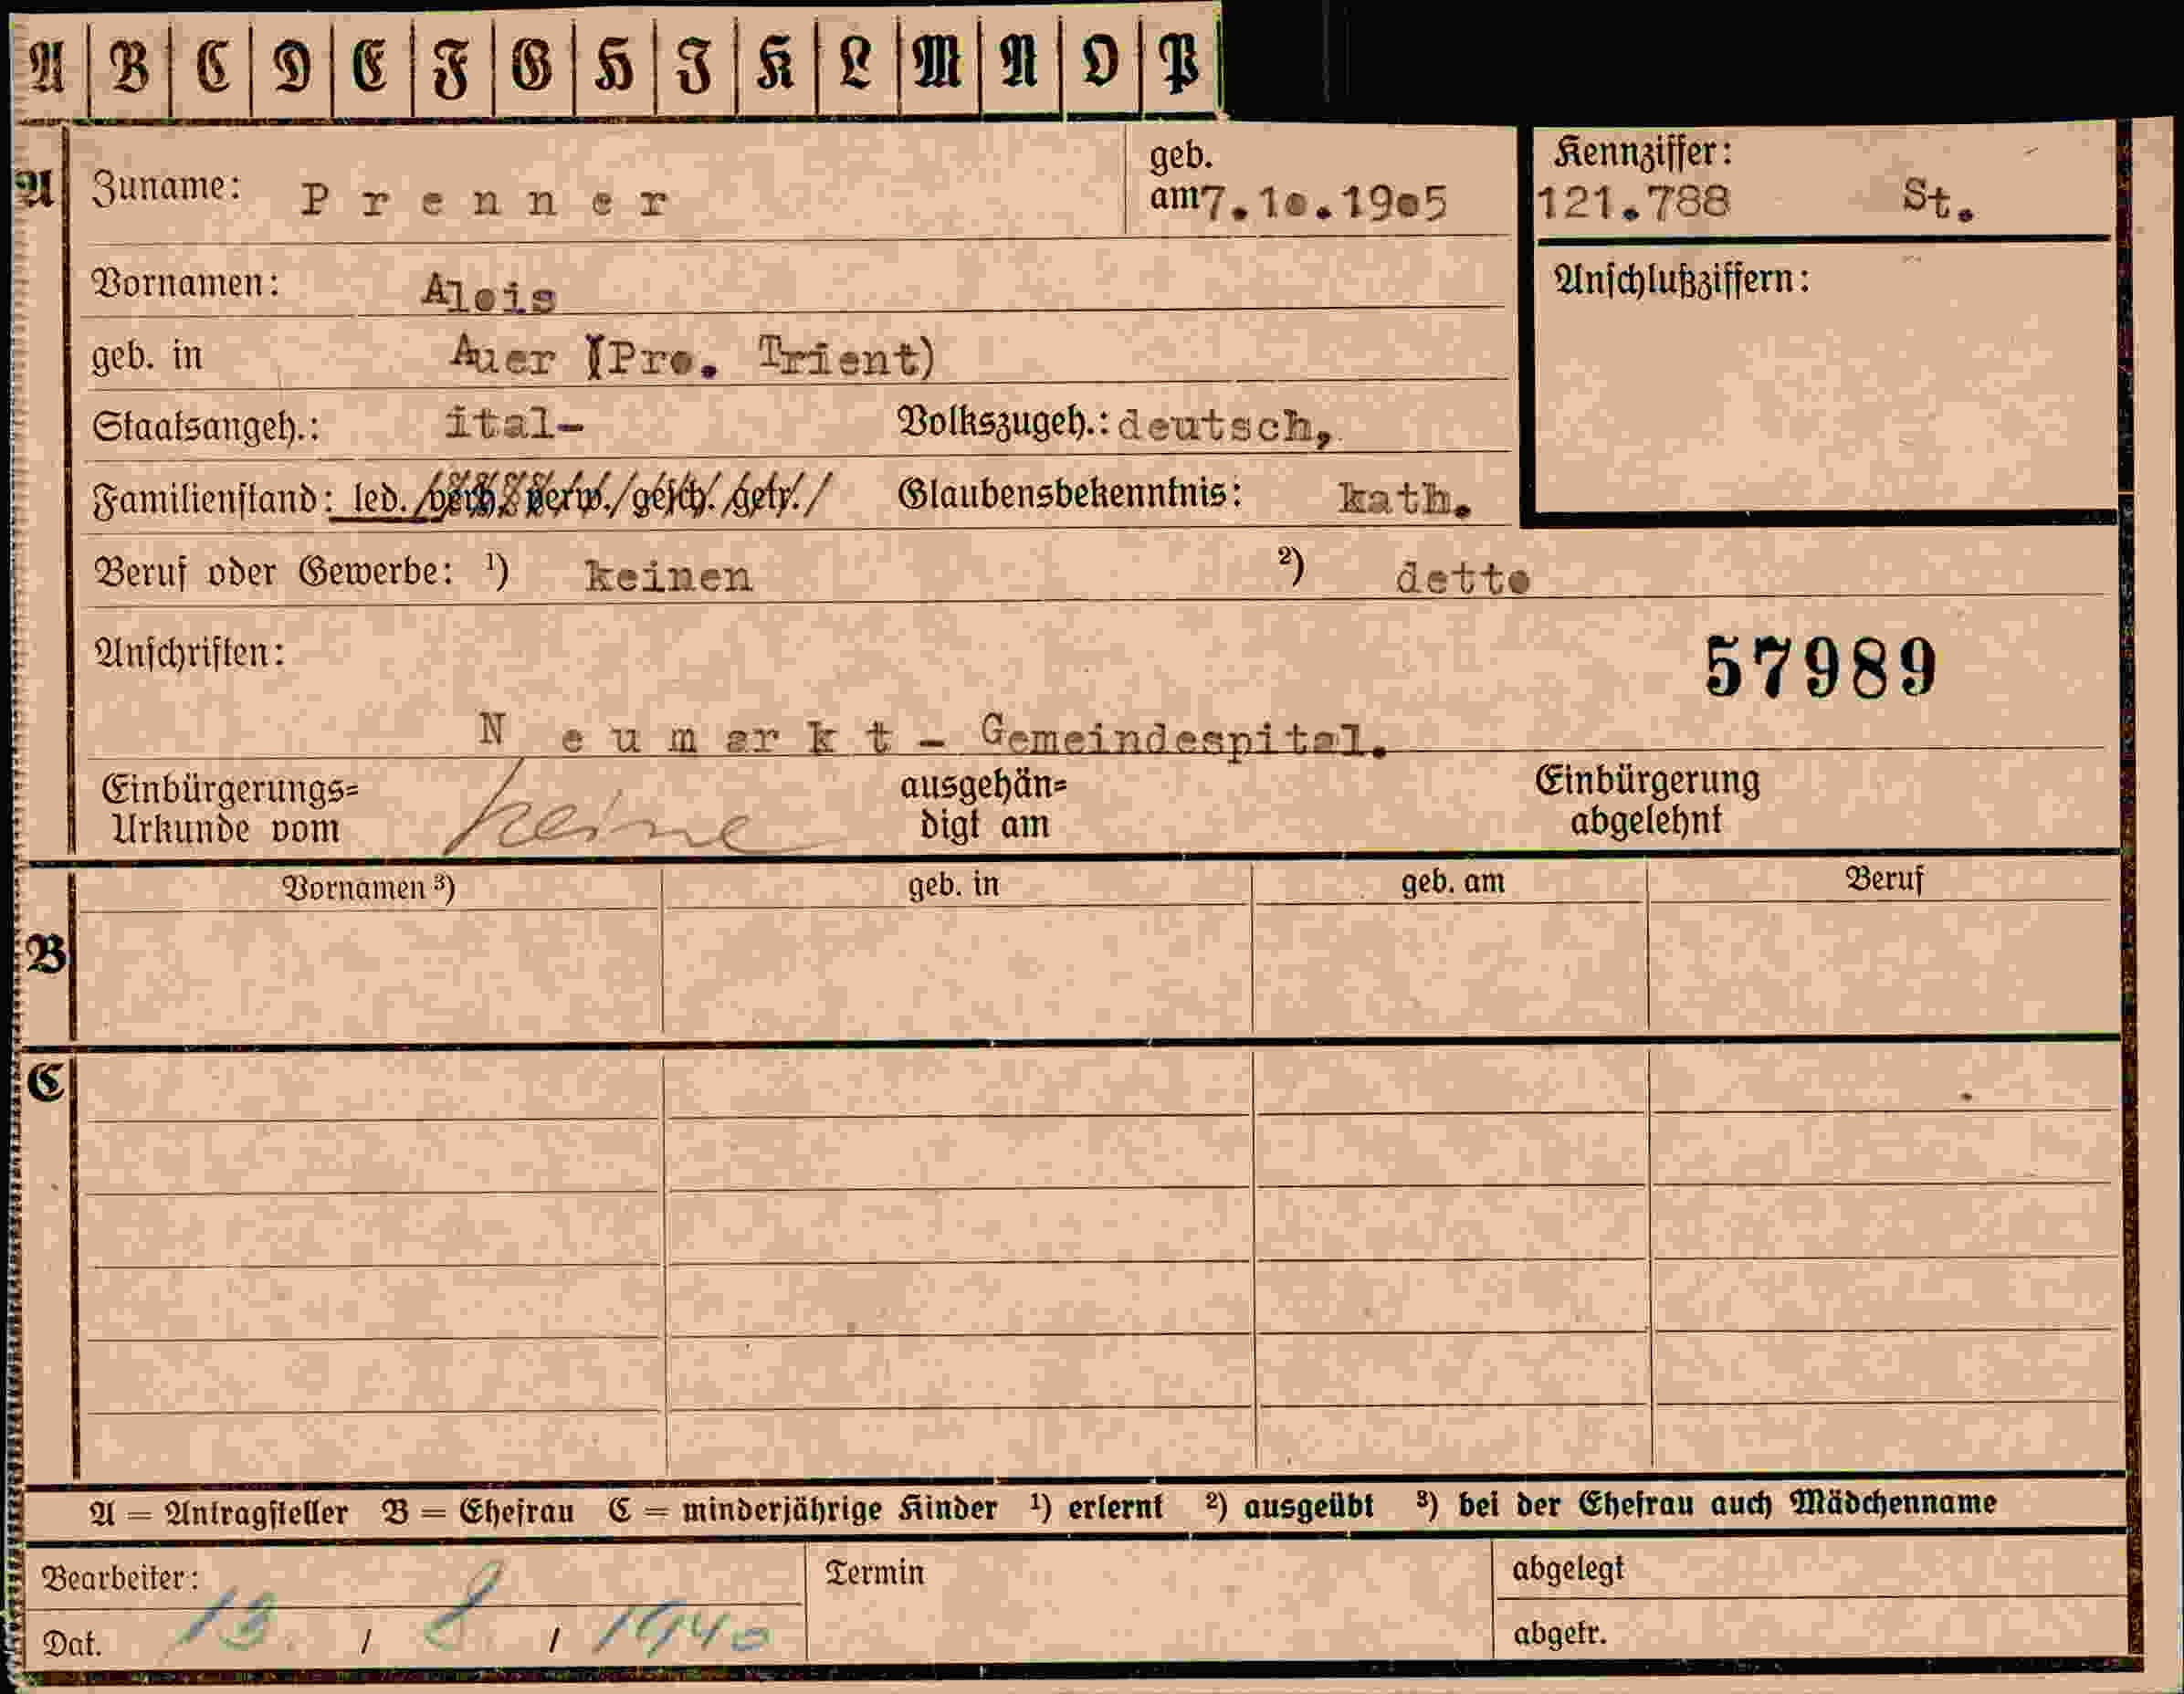 A B C D E F G H I K L M N O P
A Zuname: Prenner geb. am 7.10.1905 Kennziffer: 121.788 St.
Vornamen: Alois Anschlußziffern:
geb. in Auer (Pro. Trient)
Staatsangeh.: ital- Volkszugeh.: deutsch,
Familienstand: led./verh./verw./gesch./getr./ Glaubensbekenntnis: kath.
Beruf oder Gewerbe: ¹) keinen ²) detto
Anschriften: 57989
Neumarkt - Gemeindespital.
Einbürgerungs= Urkunde vom keine ausgehän= digt am Einbürgerung abgelehnt
Vornamen ³) geb. in geb. am Beruf
B
C
A = Antragsteller B = Ehefrau C = minderjährige Kinder ¹) erlernt ²) ausgeübt ³) bei der Ehefrau auch Mädchenname
Bearbeiter: Termin abgelegt
Dat. 13. / 8. / 1940 abgetr.